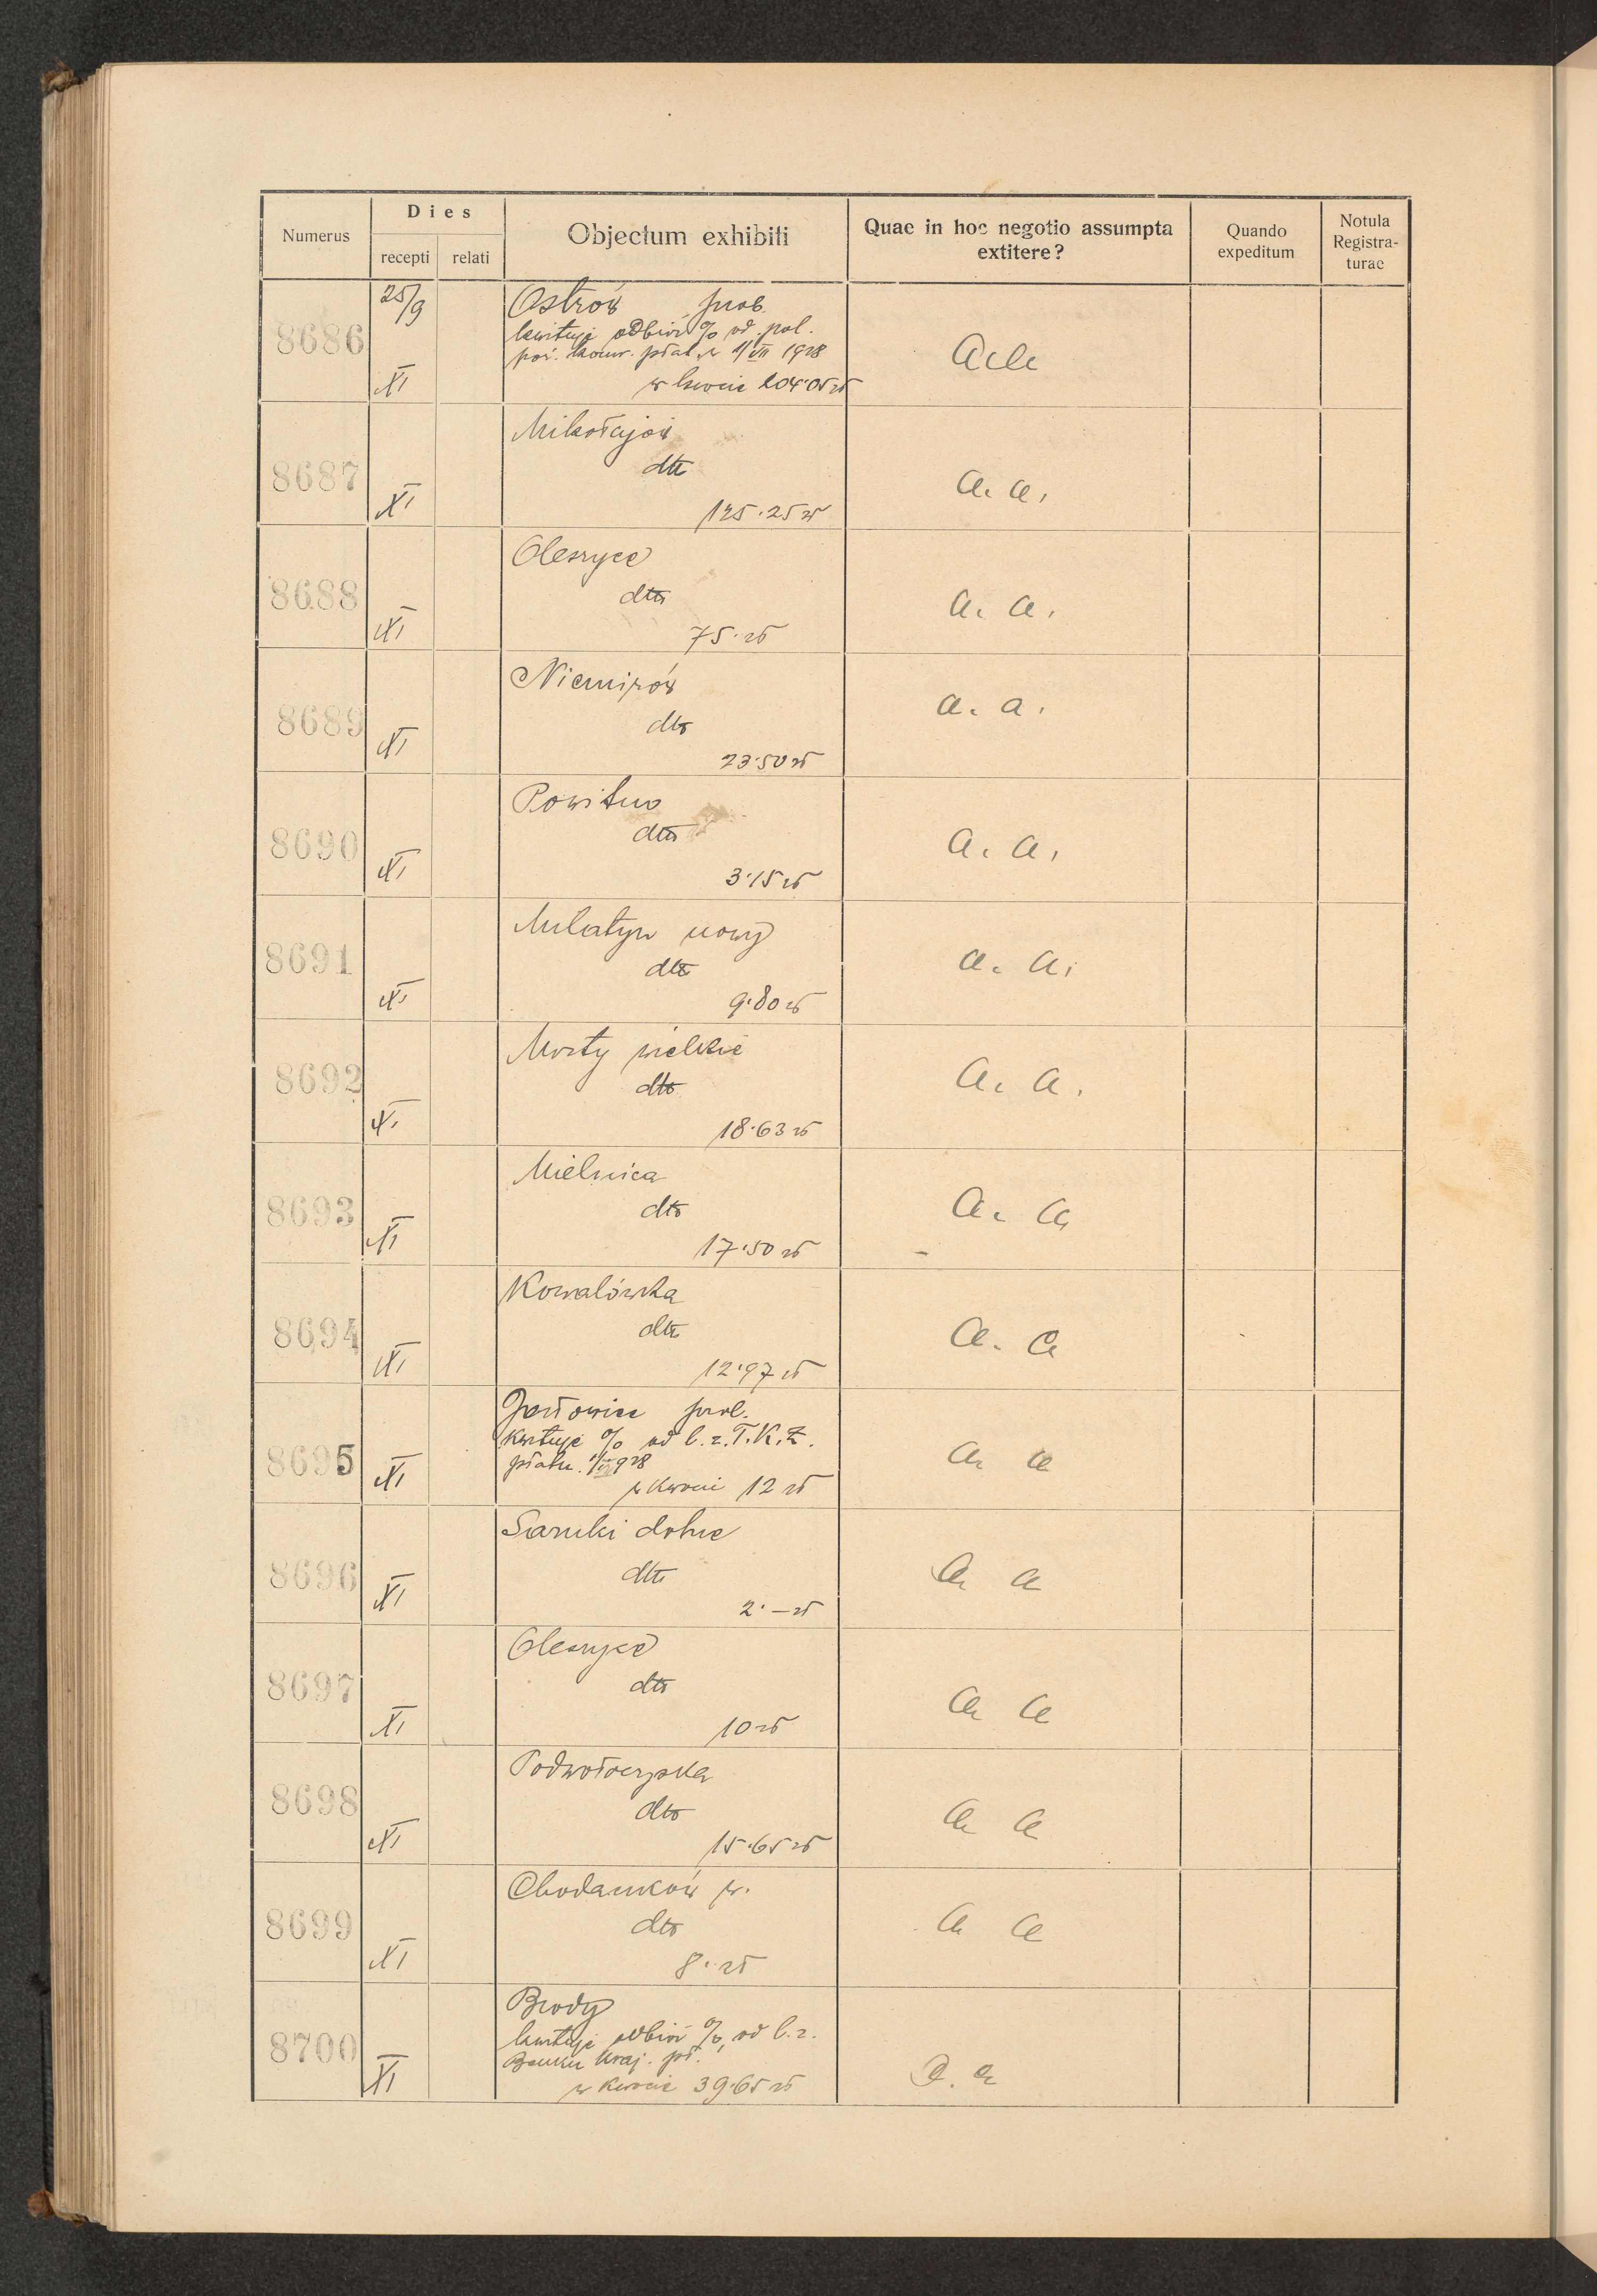 Numerus
Dies
recepti relati
Objectum exhibiti
Quae in hoc negotio assumpta
extitere?
Quando
expeditum
Notula
Registra-
turae
8686 25/9 XI
Ostrów prob.
kwituje odbiór % od pol.
poż. konw. płat. w 1/VII 1928
w kwocie 204·05 zł
8687 XI
Mikołajów
dto
125·25 zł
a. a.
8688 XI
Oleszyce
dto
75· zł
a. a.
8689 XI
Niemirów
dto
23·50 zł
a. a.
8690 XI
Powitno
dto
3·15 zł
a. a.
8691 XI
Milatyn nowy
dto
9·80 zł
a. a.
8692 XI
Mosty wielkie
dto
18·63 zł
a. a.
8693 XI
Mielnica
dto
17·50 zł
a. a
8694 XI
Kowalówka
dto
12·97 zł
a. a
8695 XI
Jazłowiec prob.
kwituje % od l. z. T.K.Z.
płatn. 1928
w kwocie 12 zł
a a
8696 XI
Sarnki dolne
dto
2·— zł
a a
8697 XI
Oleszyce
dto
10 zł
a a
8698 XI
Podwołoczyska
dto
15·65 zł
a a
8699 XI
Chodaczków w.
dto
8· zł
a a
8700 XI
Brody
kwituje odbiór % od l. z.
Banku Kraj. pł.
w kwocie 39·65 zł
a. a